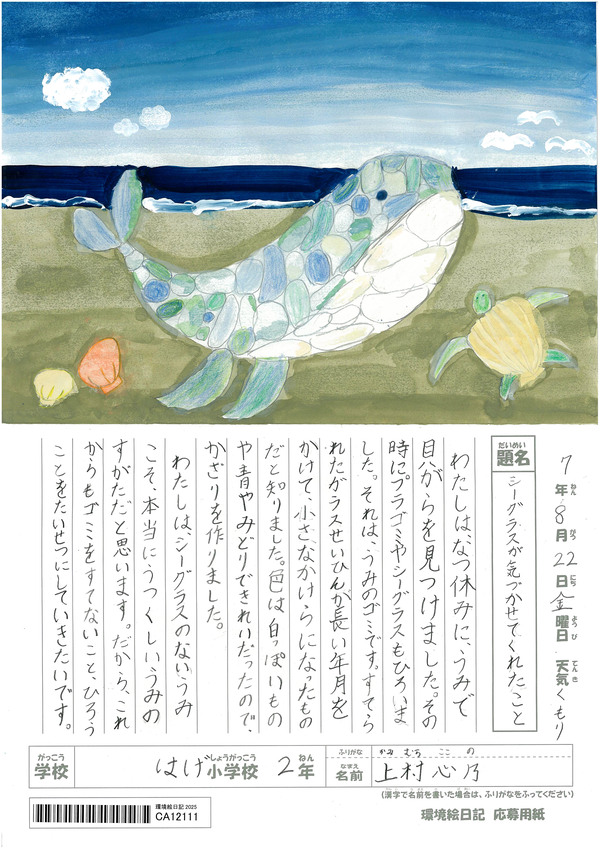 7年ねん8月がつ22日にち金曜日ようび 天気てんきくもり
だいめい
題名
シーグラスが気づかせてくれたこと
わたしは、なつ休みに、うみで
貝がらを見つけました。その
時にプラゴミやシーグラスもひろいま
した。それは、うみのゴミです。すてら
れたガラスせいひんが長い年月を
かけて、小さなかけらになったもの
だと知りました。色は白っぽいもの
や青やみどりできれいだったので、
かざりを作りました。
わたしは、シーグラスのないうみ
こそ、本当にうつくしいうみの
すがただと思います。だから、これ
からもゴミをすてないこと、ひろう
ことをたいせつにしていきたいです。
がっこう
学校
はげ小学校しょうがっこう 2年ねん
ふりがな
かみ むら ここ の
なまえ
名前
上村心乃
(漢字で名前を書いた場合は、ふりがなをふってください)
環境絵日記2025
CA12111
環境絵日記 応募用紙